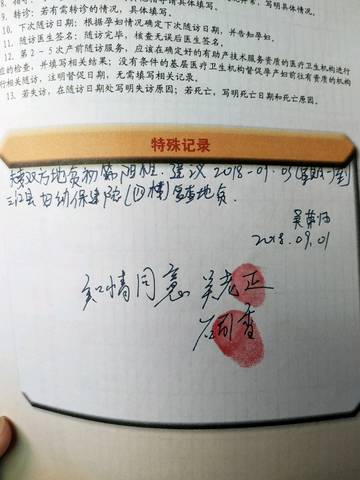 10. 下次随访日期：根据孕妇情况确定下次随访日期，并告知孕妇。
11. 随访医生签名：随访完毕，核查无误后医生签名。
12. 第2－5次产前随访服务，应该在确定好的有助产技术服务资质的医疗卫生机构进行
应的检查，并填写相关结果；没有条件的基层医疗卫生机构督促孕产妇前往有资质的机构
行相关随访，注明督促日期，无需填写相关记录。
13. 若失访，在随访日期处写明失访原因；若死亡，写明死亡日期和死亡原因。
特殊记录
夫妻双方地贫初筛阳性，建议2018-09.03(星期一)
三江县妇幼保健院(四楼)复查地贫.
2018.09.01
知情同意 吴老正